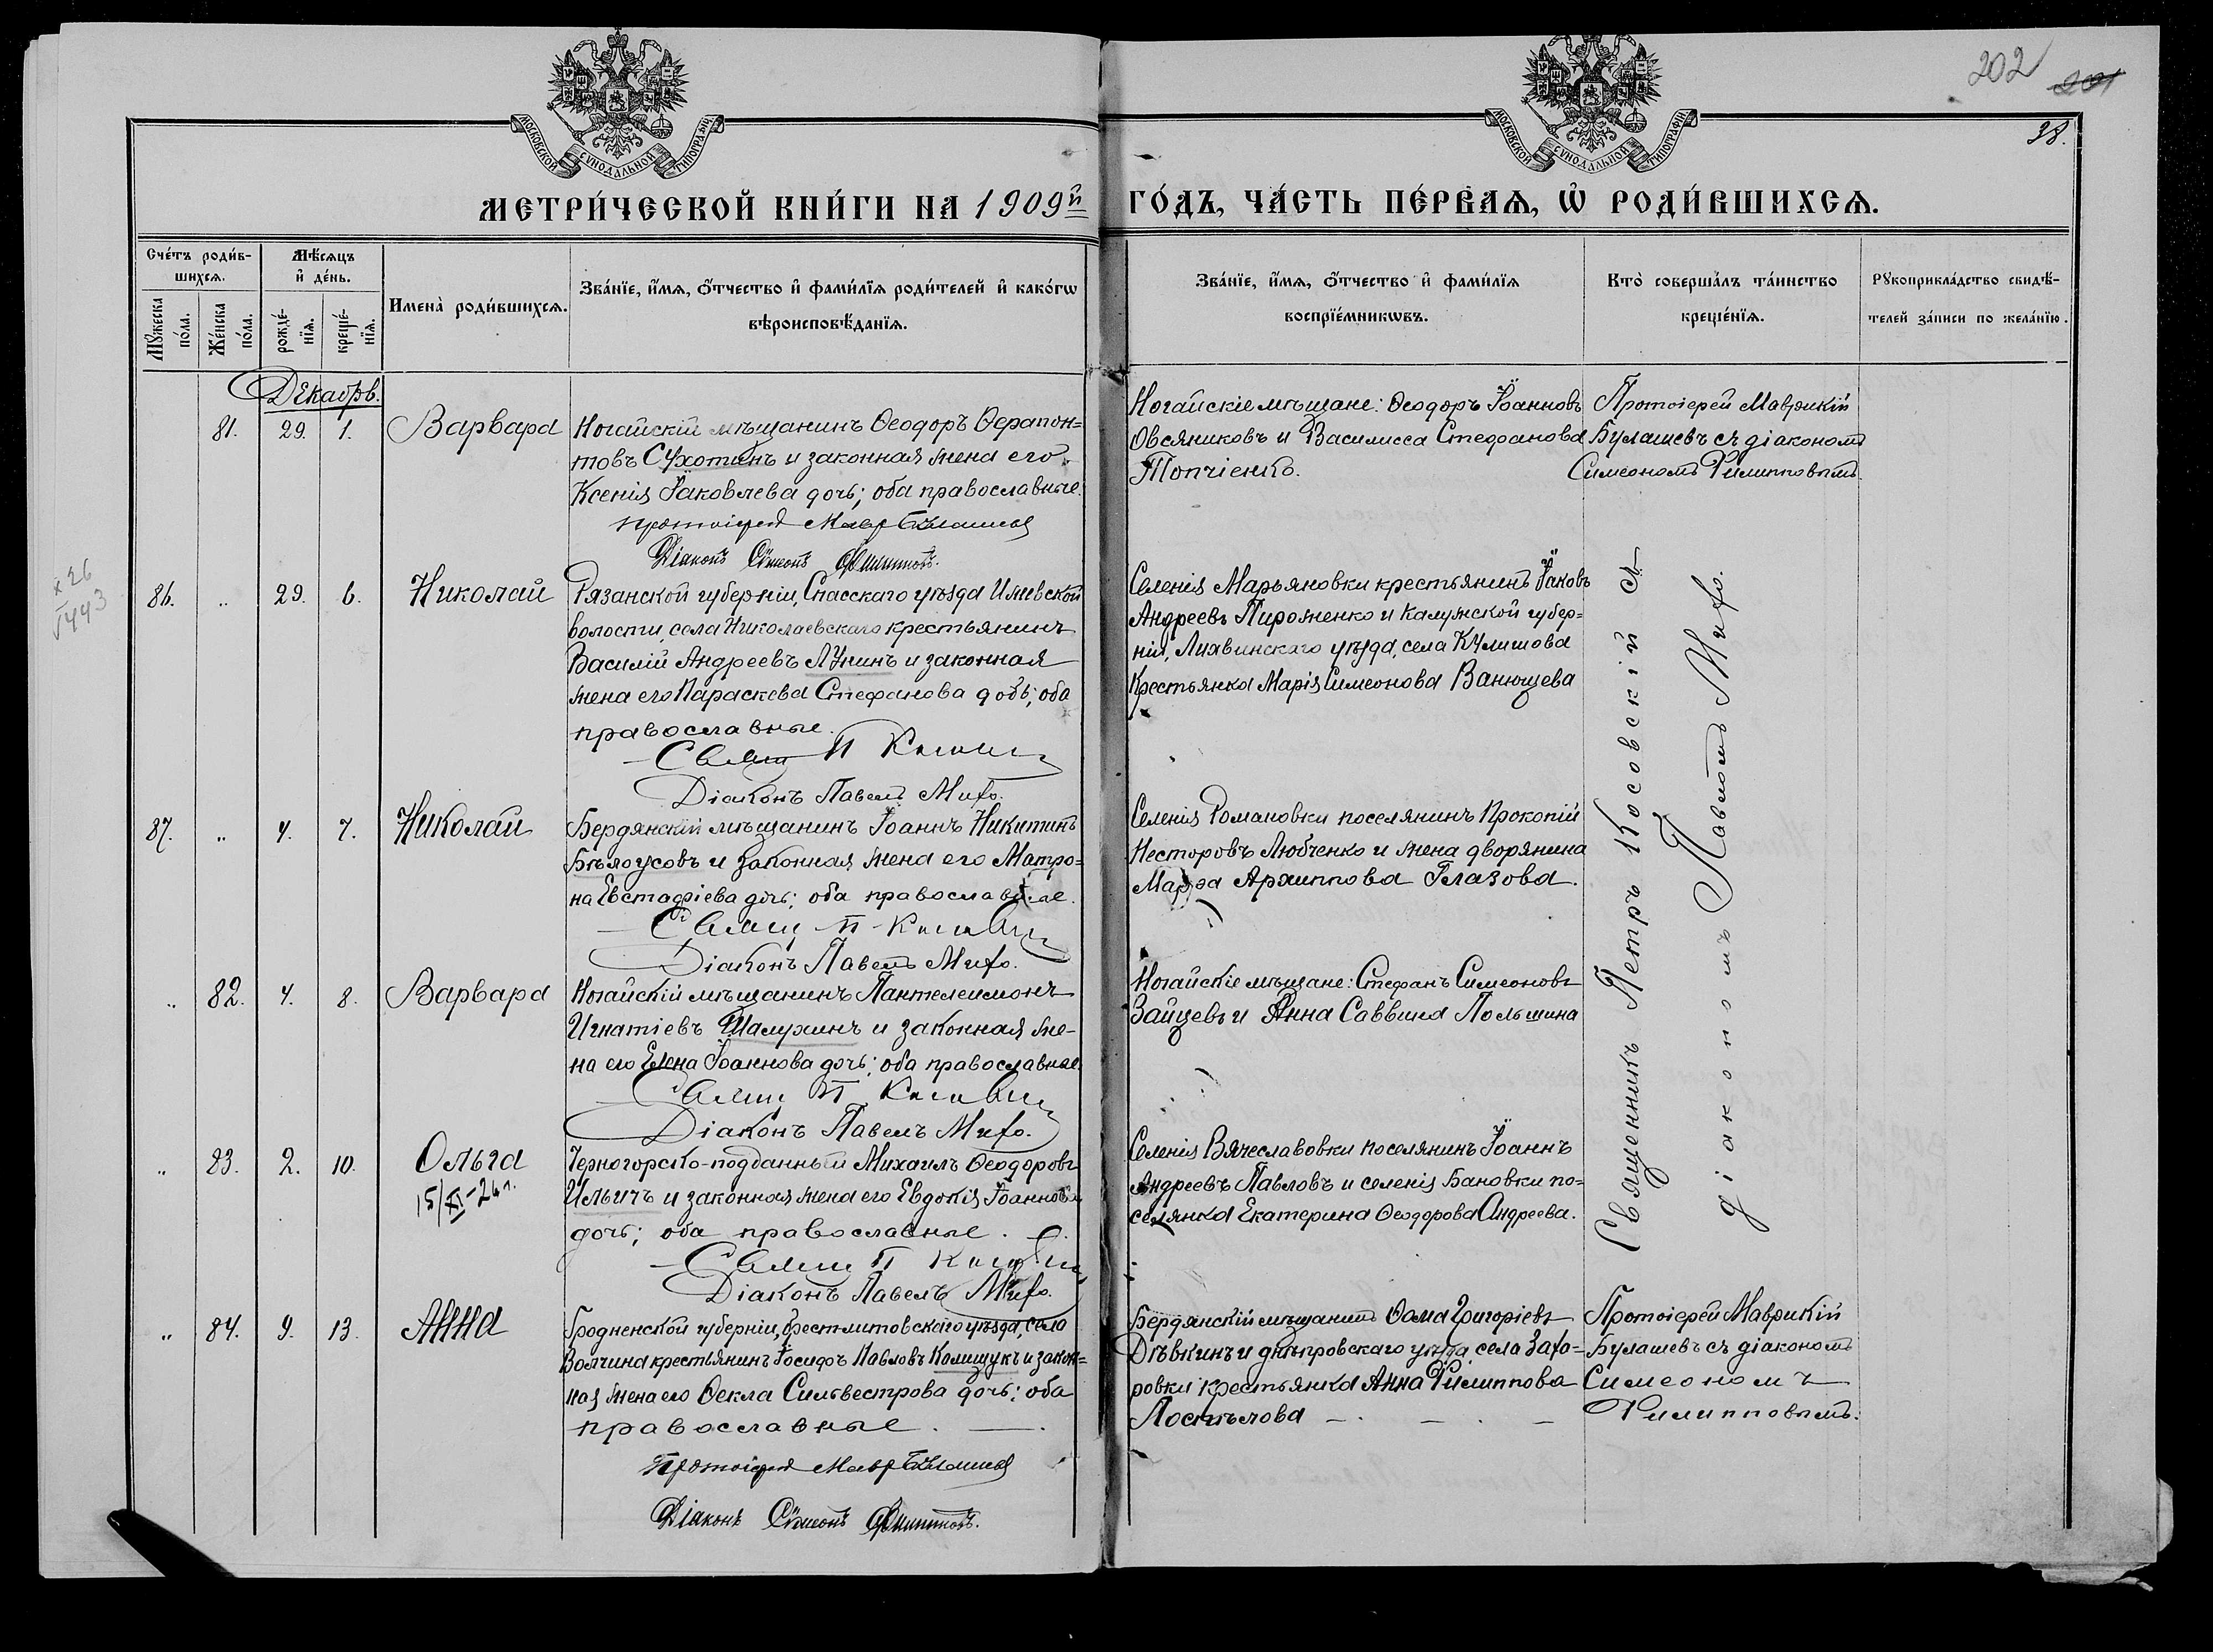 202 201
38.
МОСКОВСКОЙ СѴНОДАЛЬНОЙ ТИПОГРАФІИ
МОСКОВСКОЙ СѴНОДАЛЬНОЙ ТИПОГРАФІИ
МЕТРИ́ЧЕСКОЙ КНИ́ГИ НА 1909й ГО́ДЪ, ЧА́СТЬ ПЕ́РВАѦ, Ѡ҆ РОДИ́ВШИХСѦ.
Сче́тъ роди́в-
шихсѧ.
Мѣ́сѧцъ
и҆ де́нь.
Мꙋ́жеска
по́ла.
Же́нска
по́ла.
рожде́-
нїѧ.
креще́-
нїѧ.
Имена̀ роди́вшихсѧ.
Зва́нїе, и҆́мѧ, ѻ҆́тчество и҆ фами́лїѧ роди́телей и҆ како́гѡ
вѣроисповѣ́данїѧ.
Зва́нїе, и҆́мѧ, ѻ҆́тчество и҆ фами́лїѧ
воспрїе́мникѡвъ.
Кто̀ соверша́лъ та́инство
креще́нїѧ.
Рꙋкоприкла́дство свидѣ́-
телей за́писи по жела́нїю.
Декабрь.
81. 29. 1. Варвара
Ногайскій мѣщанинъ Ѳеодоръ Ѳерапон=
товъ Сухотинъ и законная жена его
Ксенія Іаковлева дочь; оба православные.
Протоіерей Мавр Булашевъ
Діаконъ Сѵмеонъ Филипповъ.
Ногайскіе мѣщане: Ѳеодоръ Іоанновъ
Овсяниковъ и Василисса Стефанова
Топчіенко.
Протоіерей Маврикій
Булашевъ съ діакономъ
Симеономъ Филипповымъ.
х26
√443
86. „ 29. 6. Николай
Рязанской губерніи, Спасскаго уѣзда Ижевской
волости, села Николаевскаго крестьянинъ
Василій Андреевъ Лунинъ и законная
жена его Параскева Стефанова дочь; оба
православные.
Свящ П Косовскі
Діаконъ Павелъ Миго.
Селенія Марьяновки крестьянинъ Іаковъ
Андреевъ Пироженко и Калужской губер=
ніи, Лихвинскаго уѣзда, села Кулишова
крестьянка Марія Симеонова Ванющева
87. „ 4. 7. Николай
Бердянскій мѣщанинъ Іоаннъ Никитинъ
Бѣлоусовъ и законная жена его Матро=
на Евстафіева дочь; оба православные.
Свящ П Косовскі
Діаконъ Павелъ Миго.
Селенія Романовки поселянинъ Прокопій
Несторовъ Любченко и жена дворянина
Марѳа Архиппова Глазова.
„ 82. 4. 8. Варвара
Ногайскій мѣщанинъ Пантелеимонъ
Игнатіевъ Шалухинъ и законная же-
на его Елена Іоаннова дочь; оба православные.
Свящ П Косовскі
Діаконъ Павелъ Миго.
Ногайскіе мѣщане: Стефанъ Симеоновъ
Зайцевъ и Анна Саввина Польшина
„ 83. 2. 10. Ольга
15/XI-24 г.
Черногорско-подданный Михаилъ Ѳеодоровъ
Ильичъ и законная жена его Евдокія Іоаннова
дочь; оба православные.
Свящ П Косовскі
Діаконъ Павелъ Миго.
Селенія Вячеславовки поселянинъ Іоаннъ
Андреевъ Павловъ и селенія Бановки по=
селянка Екатерина Ѳеодорова Андреева.
Священникъ Петръ Косовскій съ
діакономъ Павломъ Миго.
„ 84. 9. 13. Анна
Гродненской губерніи, Брестлитовскаго уѣзда, села
Волчина крестьянинъ Іосифъ Павловъ Калищукъ и закон=
ная жена его Ѳекла Сильвестрова дочь; оба
православные.
Протоіерей Мавр Булашевъ
Діаконъ Сѵмеонъ Филипповъ.
Бердянскій мѣщанинъ Ѳома Григоріевъ
Дѣвкинъ и днѣпровскаго уѣзда, села Заха=
ровки крестьянка Анна Филиппова
Поспѣлова
Протоіерей Маврикій
Булашевъ съ діакономъ
Симеономъ
Филипповымъ.